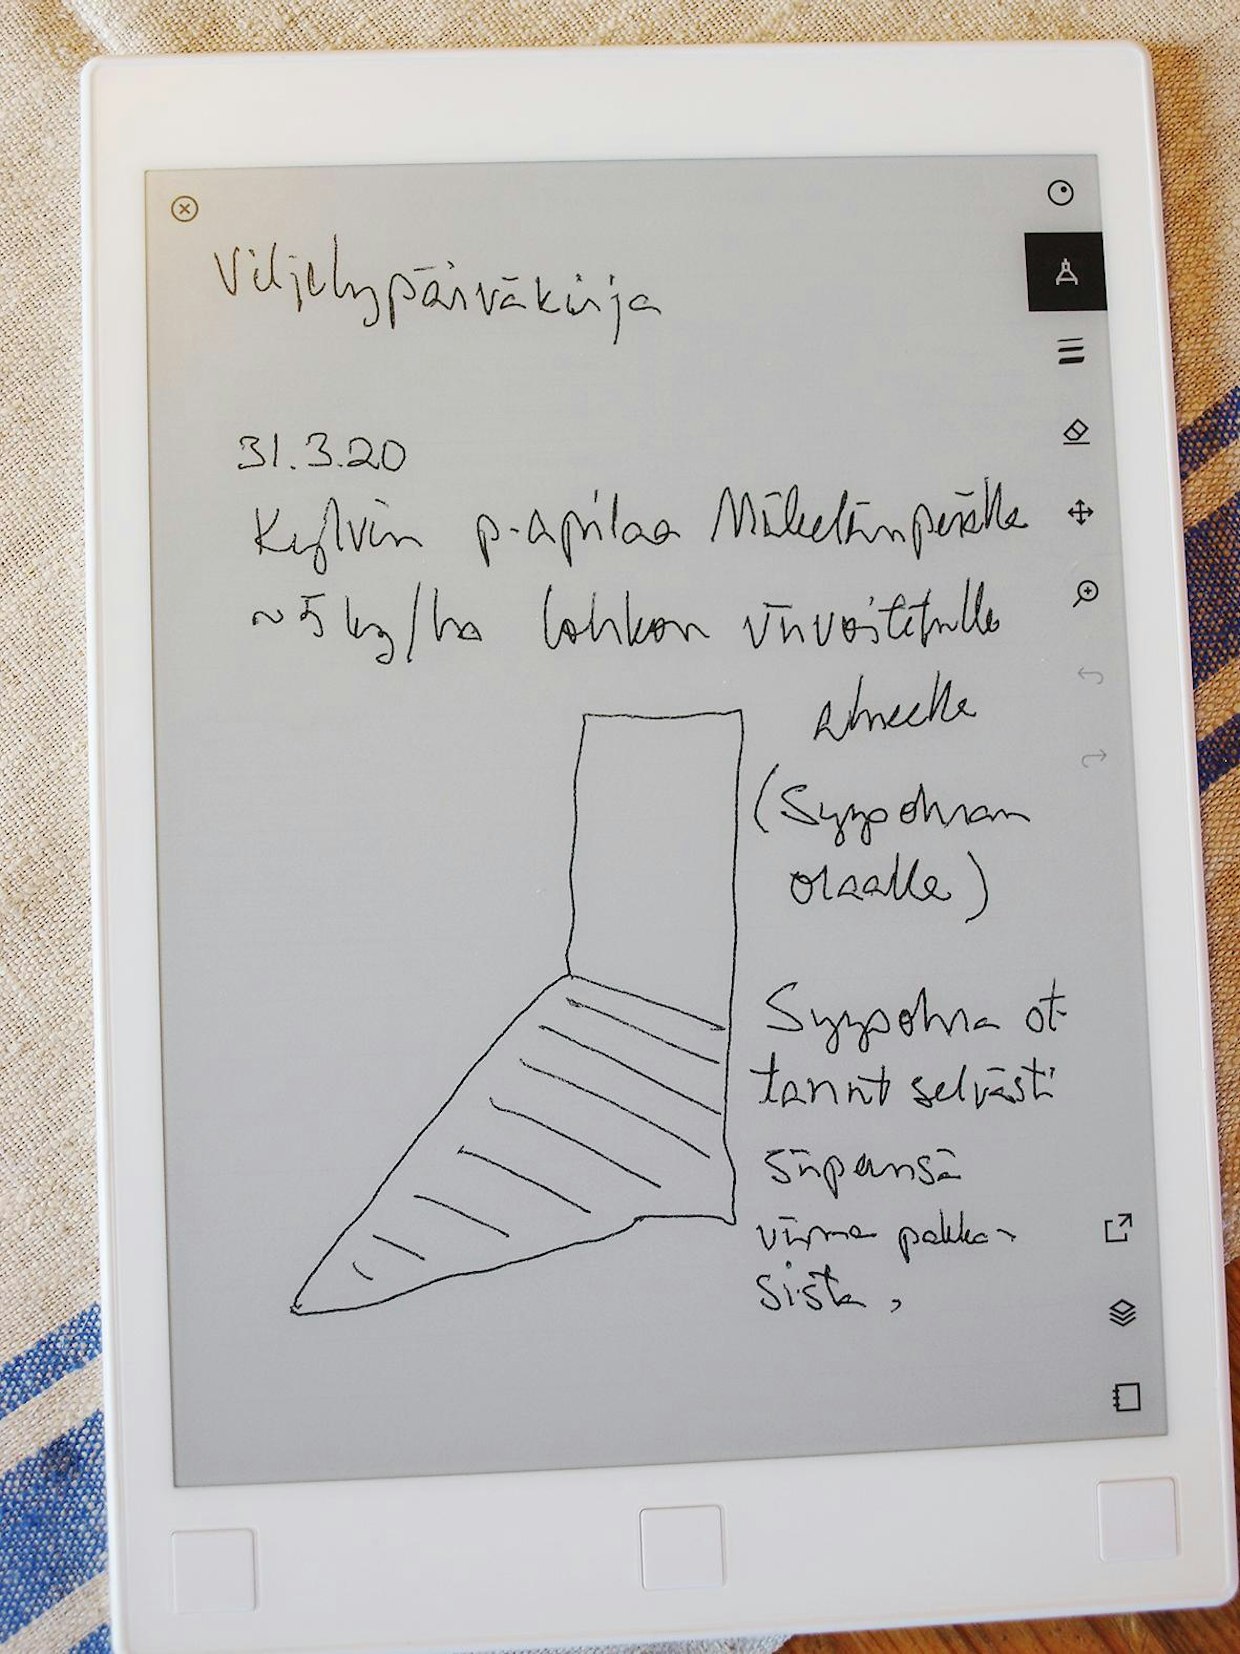 Viljelypäiväkirja
31.3.20
Kylvin p-apilaa Mikelänperälle
~5 kg/ha lohkon viivoitetulle
alueelle
(Syysohran
oraalle)
Syysohra ot-
tanut selvästi
siipeensä
viime pakka-
sista,